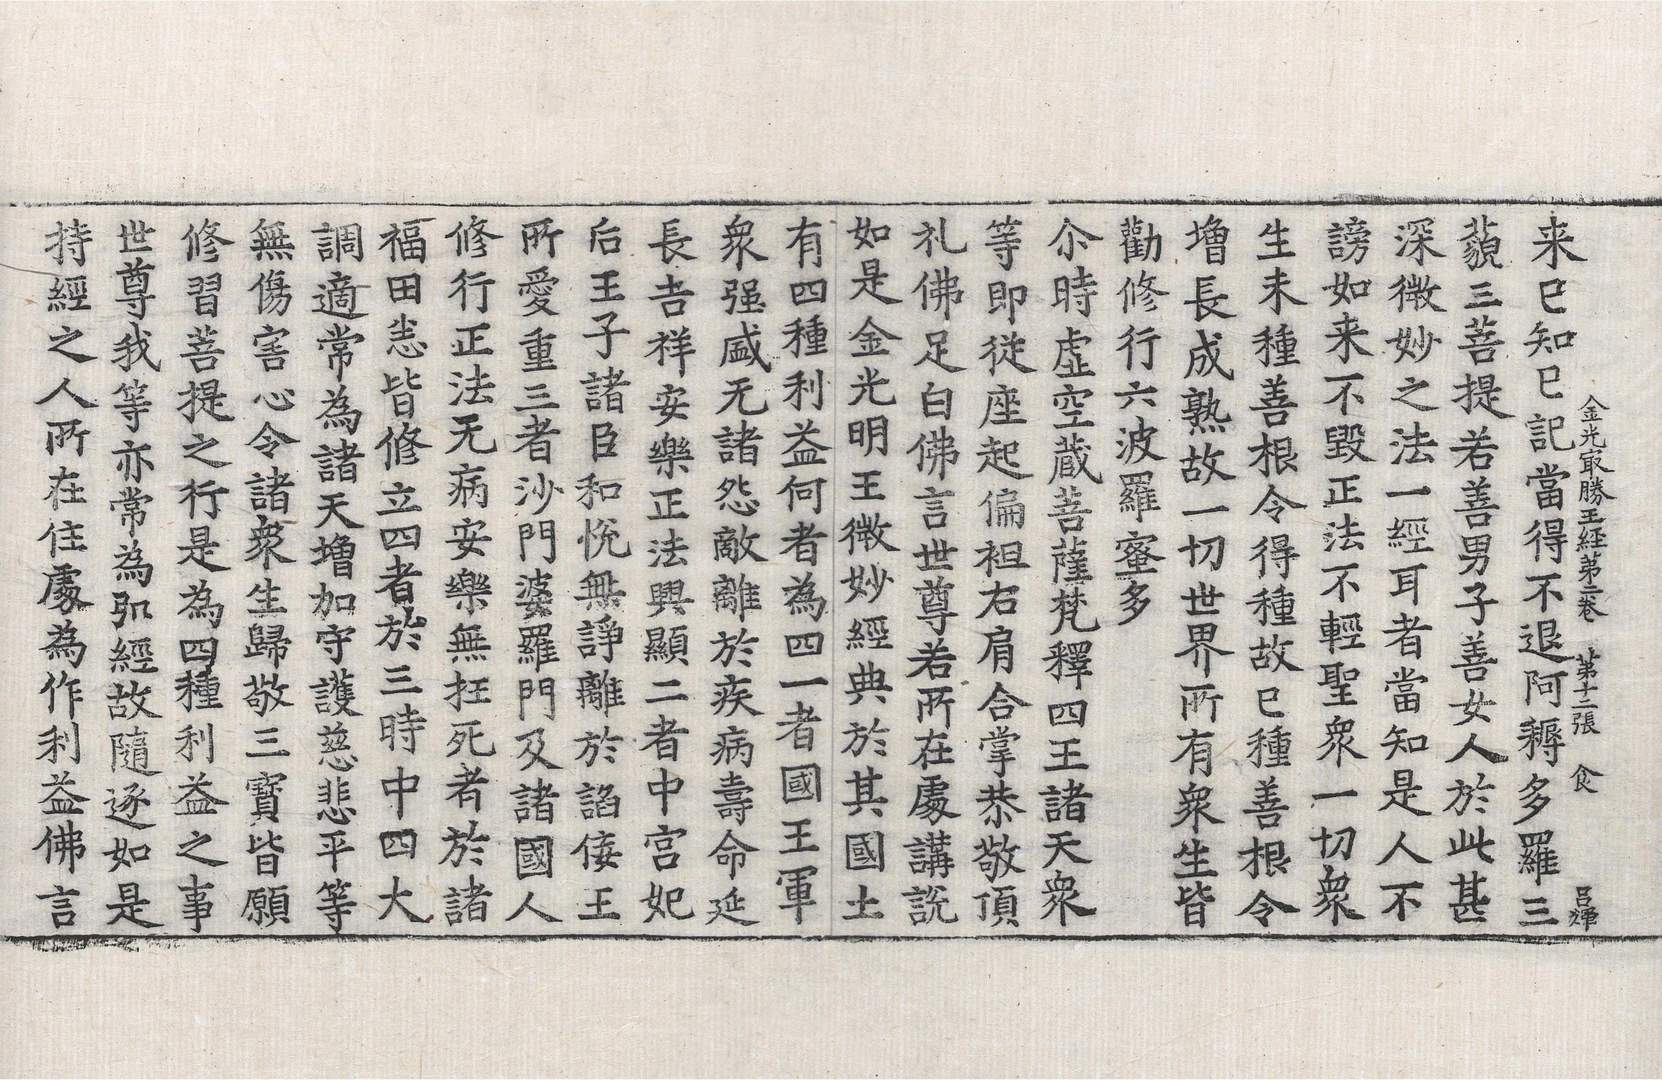 金光㝡勝王經第二卷　第十三張　食　呂渾
来已知已記當得不退阿耨多羅三
藐三菩提若善男子善女人於此甚
深微妙之法一經耳者當知是人不
謗如来不毀正法不輕聖衆一切衆
生未種善根令得種故已種善根令
增長成熟故一切世界所有衆生皆
勸修行六波羅蜜多
尒時虛空藏菩薩梵釋四王諸天衆
等即從座起偏袒右肩合掌恭敬頂
礼佛足白佛言世尊若所在處講說
如是金光明王微妙經典於其國土
有四種利益何者為四一者國王軍
衆强盛无諸怨敵離於疾病壽命延
長吉祥安樂正法興顯二者中宮妃
后王子諸臣和悅無諍離於諂佞王
所愛重三者沙門婆羅門及諸國人
修行正法无病安樂無枉死者於諸
福田悉皆修立四者於三時中四大
調適常為諸天增加守護慈悲平等
無傷害心令諸衆生歸敬三寶皆願
修習菩提之行是為四種利益之事
世尊我等亦常為弘經故隨逐如是
持經之人所在住處為作利益佛言